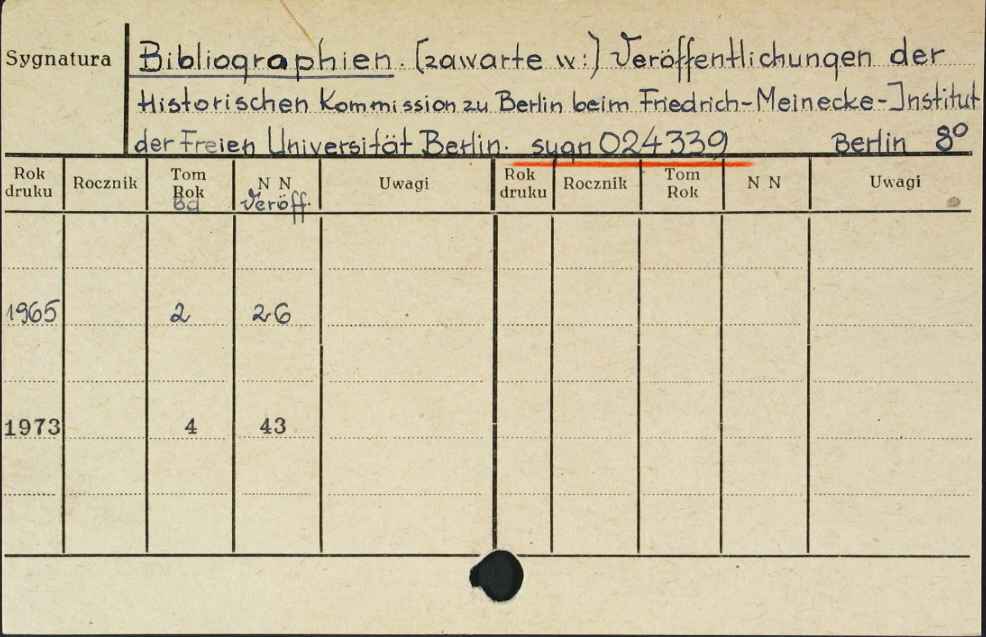 Sygnatura
Bibliographien. (zawarte w:) Veröffentlichungen der
Historischen Kommission zu Berlin beim Friedrich-Meinecke-Institut
der Freien Universität Berlin. sygn 024339 Berlin 8º
Rok druku Rocznik Tom Rok Bd N N Veröff. Uwagi Rok druku Rocznik Tom Rok N N Uwagi
1965 2 26
1973 4 43